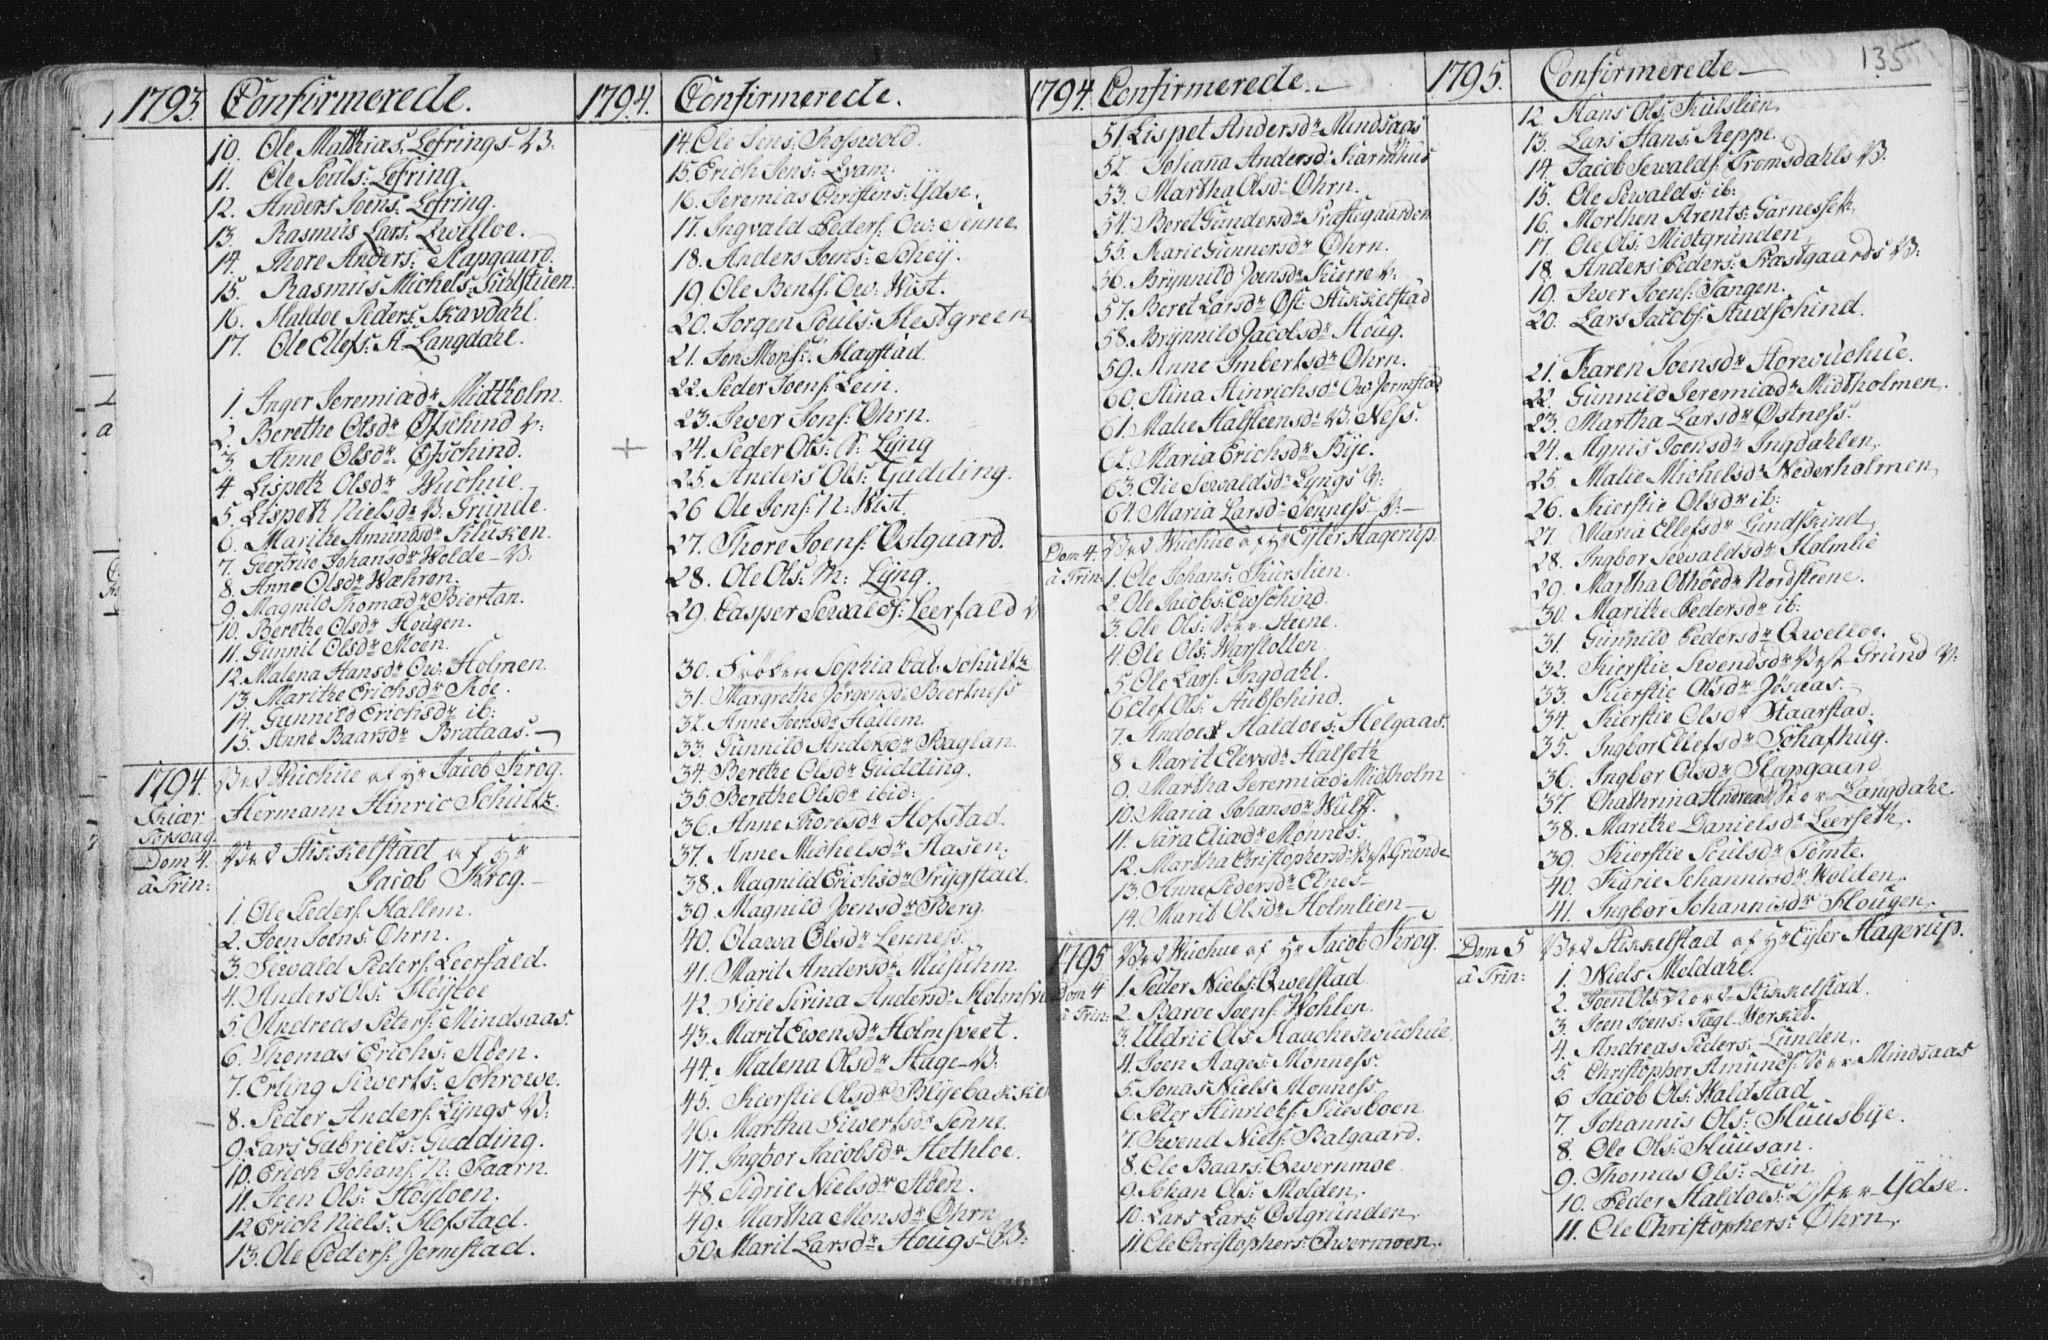 135
1793. Confirmerede.
10. Ole Mathias. Lefrings V:
11. Ole Pouls: Lefring.
12. Anders Joens: Lefring.
13. Rasmus Lars: Qwelloe.
14. Thore Anders: Slapgaard.
15. Rasmus Michels: Kulstuen
16. Haldoe Peders: Skavdahl.
17. Ole Ellefs: K. Langdahl.
1. Inger Jeremiædr Midtholm.
2. Berethe Olsdr Øfschind V:
3. Anne Olsdr. Øfschind.
4. Lispeth Olsdr Wuchue
5. Lispeth Nielsdr V. Grunde.
6. Marithe Amundsdr Kluken.
7. Geertrue Johansdr Wolde V:
8. Anne Olsdr Wæhren.
9. Magnild Thomædr Biertan.
10. Berethe Olsdr Hougen.
11. Gunnil Olsdr Moen.
12. Malena Hansdr Ow: Holmen.
13. Marithe Erichsdr Roe.
14. Gunnild Erichsdr ib:
15. Anne Baarsdr Brataas.
1794. Ved Wuchue af Hr Jacob Krog.
Skiær Torsdag Hermann Hinric Schultz.
Dom 4. Ved Stikkelstad af Hr
à Trin: Jacob Krog.
1. Ole Peders: Hallem.
2. Joen Joens: Ohrn.
3. Sewald Peders: Leerfald.
4. Anders Ols: Høyloe
5. Andreas Peters: Mindsaas.
6. Thomas Erichs: Støen.
7. Erling Siwerts: Schrowe.
8. Peter Anders: Lyngs V:
9. Lars Gabriels: Gudding.
10. Erich Johans: N. Faarn.
11. Joen Ols: Høyloen.
12 Erich Niels: Hofstad.
13. Ole Peders: Jermstad.
1794. Confirmerede.
14. Ole Jens: Rosvold.
15. Erich Jens: Kvam.
16. Jeremias Christens: Ydse.
17. Ingvald Peders: Ow: Tinne
18. Anders Joens: Schey.
19. Ole Bents: Ow: Wist.
20. Jorgen Pouls: Hestgreen
21. Jon Mons: Slagstad.
22. Peder Joens: Lein.
23. Iwer Jons: Ohrn.
24. Peder Ols: S: Lyng
25. Anders Ols: Gudding.
26 Ole Jons: N: Wist.
27. Thore Joens: Ostgaard.
28. Ole Ols: M: Lyng.
29. Casper Sewalds: Leerfald V:
30. Frøken Sophia Cat: Schultz
31. Margrethe Jørgensdr Biertness
32. Anne Joensdr Hallem.
33. Gunnild Andersdr Baglan.
34. Berethe Olsdr Gudding.
35. Berethe Olsdr ibid:
36. Anne Thoresdr Hofstad.
37. Anne Michelsdr Hasen.
38. Magnild Erichsdr Trygstad.
39. Magnild Joensdr Berg.
40. Olawa Olsdr Lenness.
41. Marit Andersdr Musuhm.
42. Sirie Sirina Andersdr Holmsve
43. Marit Ewensdr Holmsveet.
44. Malena Olsdr Hage V:
45. Kierstie Olsdr Blyebakken
46. Martha Siwertsdr Penne.
47. Ingbor Jacobsdr Hethloe.
48. Sigrie Nielsdr Støen.
49. Martha Monsdr Ohrn
50. Marit Larsdr Hougs V:
1794. Confirmerede.
51. Lispet Andersdr Mindsaas
52. Johana Andersdr Karmhus
53. Martha Olsdr Ohrn.
54. Beret Gundersdr Præstegaarden
55. Marie Gunnersdr Ohrn.
56. Brynnild Joensdr Kierre V:
57. Beret Larsdr Øst Stikkelstad
58. Brynnild Jacobsdr Houg.
59. Anne Imbertsdr Ohrn.
60. Stina Hinrichsdr Ow Jermstad
61. Malie Halsteensdr V: Ness.
62. Maria Erichsdr Bye.
63. Elie Sewaldsdr Lyngs V:
64. Maria Larsdr Tenness V:
Dom 4. Ved Wuchue af Hr Eyler Hagerup.
à Trin: 1. Ole Johans: Kierslien.
2. Ole Jacobs: Owschind.
3. Ole Ols: Søer Steene.
4. Ole Ols: Warslotten.
5. Ole Lars: Ingdahl.
6 Elef Ols: Stubschind.
7. Andoer Haldoes: Helgaas.
8 Marit Elevsdr Halseth
9. Martha Jeremiæd Midtholm
10. Maria Johansdr Wulff.
11. Sara Eliædr Monnes.
12. Martha Christophersdr Vest Grunde
13. Anne Pedersdr Elnes
14. Marit Olsdr Holmlien
1795 Ved Wuchue af Hr Jacob Krog.
Dom 4 1 Peder Niels: Qwelstad.
à Trin: 2. Baroe Joens: Wohlen.
3. Uldric Ols: Haachenwuchue.
4. Joen Aages: Monness.
5. Jonas Niels: Monness.
6 Peter Hinrichs: Kiesboen.
7. Swend Niels: Balgaard.
8. Ole Baars: Qwernmoe.
9. Johan Ols: Molden.
10. Lars Lars: Ostgrunden.
11. Ole Christophers: Qwermoen.
1795. Confirmerede
12. Hans Ols: Kulslien.
13. Lars Hans: Reppe.
14. Jacob Sewalds: Tromsdahls V:
15. Ole Sewalds: ib:
16. Morthen Arents: Garnesseth.
17. Ole Ols: Midtgrunden.
18. Anders Peders: Præstgaards V:
19. Iwer Joens: Tangen.
20. Lars Jacobs: Studschind.
21. Karen Joensdr Horwuchue.
22. Gunnild Jeremiædr Midtholmen.
23. Martha Larsdr Østness.
24. Agnis Joensdr Ingdahlen.
25. Malie Michelsdr Nederholmen
26. Kierstie Olsdr ib:
27. Maria Ellefsdr Gundskind
28. Ingbor Sewaldsdr Holmlie
29. Martha Othoedr Nordsteene.
30. Marithe Pedersdr ib:
31. Gunnild Pedersdr Qwelloe.
32. Kierstie Swendsdr Vest Grund V:
33. Kierstie Olsdr Jøsaas.
34. Kierstie Olsdr Staarstad.
35. Ingbor Ellefsdr Schafhug.
36. Ingbor Olsdr Slapgaard
37. Chathrina Andreædr Søer Langdahl
38. Marithe Danielsdr Leerseth.
39. Kierstie Poulsdr Tømte.
40. Karie Johannisdr Wolden.
41. Ingbor Johannisdr Hougen.
Dom 5 Ved Stikkelstad af Hr Eyler Hagerup.
à Trin: 1. Niels Meldahl.
2. Joen Ols: Nord Stikkelstad.
3. Joen Joens: Fagl Werket.
4. Andreas Peders: Lunden.
5. Christopher Amunds: Søer Mindsaas
6 Jacob Ols: Waldstad
7. Johannis Ols: Huusbye.
8. Ole Ols: Huusan.
9. Thomas Ols: Lein
10. Peder Haldoes: Øster Ydse.
11. Ole Christophers: Ohrn.